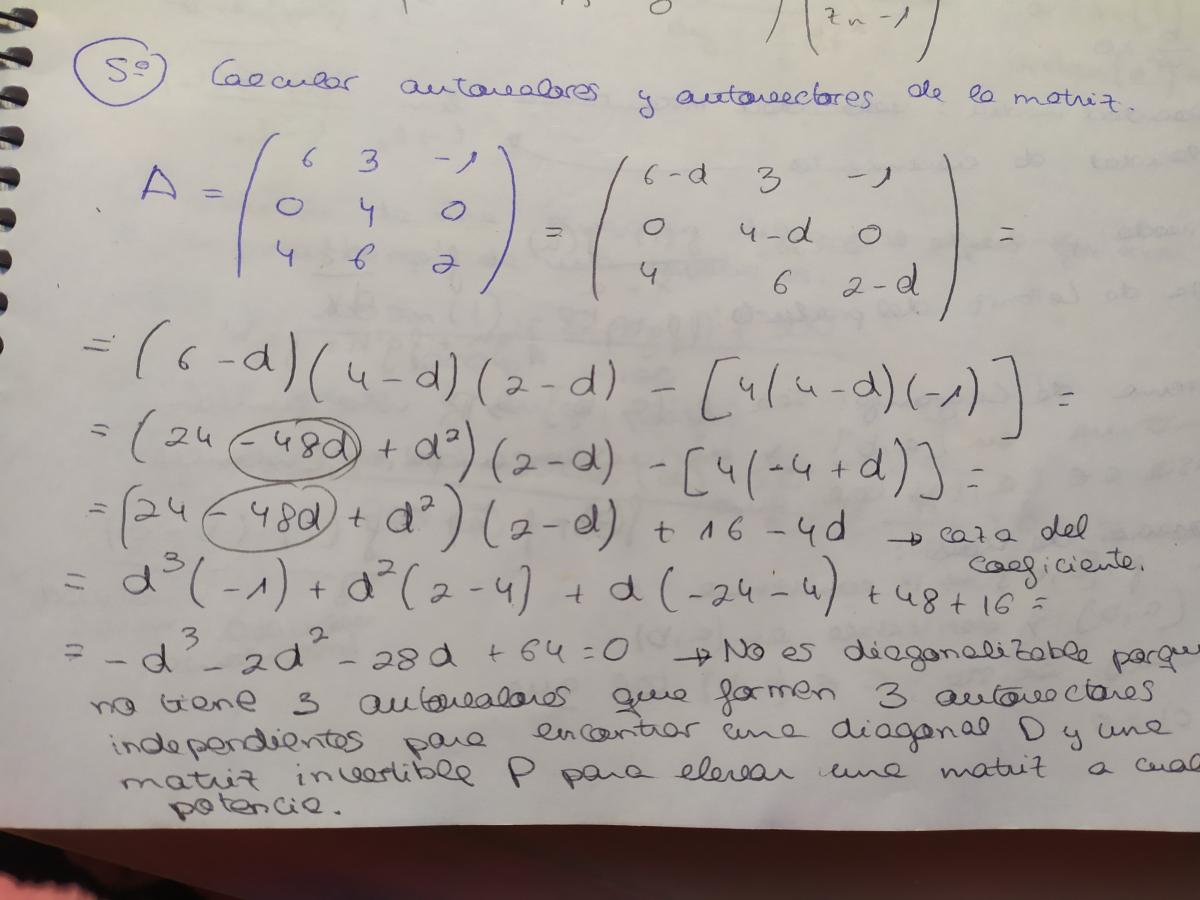 0
zn -1
5º Calcular autovalores y autovectores de la matriz.
A = ( 6 3 -1 ) = ( 6-d 3 -1 ) =
0 4 0 0 4-d 0
4 6 2 4 6 2-d
= (6-d)(4-d)(2-d) - [4(4-d)(-1)] =
= (24 -48d + d²)(2-d) - [4(-4+d)] =
= (24 -48d + d²)(2-d) + 16 - 4d → caza del
coeficiente.
= d³(-1) + d²(2-4) + d(-24-4) + 48 + 16 =
= -d³ - 2d² - 28d + 64 = 0 → No es diagonalizable porque
no tiene 3 autovalores que formen 3 autovectores
independientes para encontrar una diagonal D y una
matriz invertible P para elevar una matriz a cual
potencia.